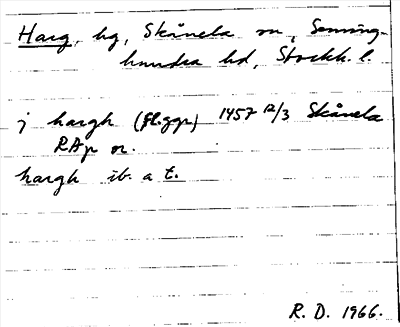 Harg, hg, Skånela sn, Seming-
hundra hd, Stockh. l.
j hargh (fl. ggr) 1457 12/3 Skånela
RAp or.
hargh ib. a t.
R. D. 1966.